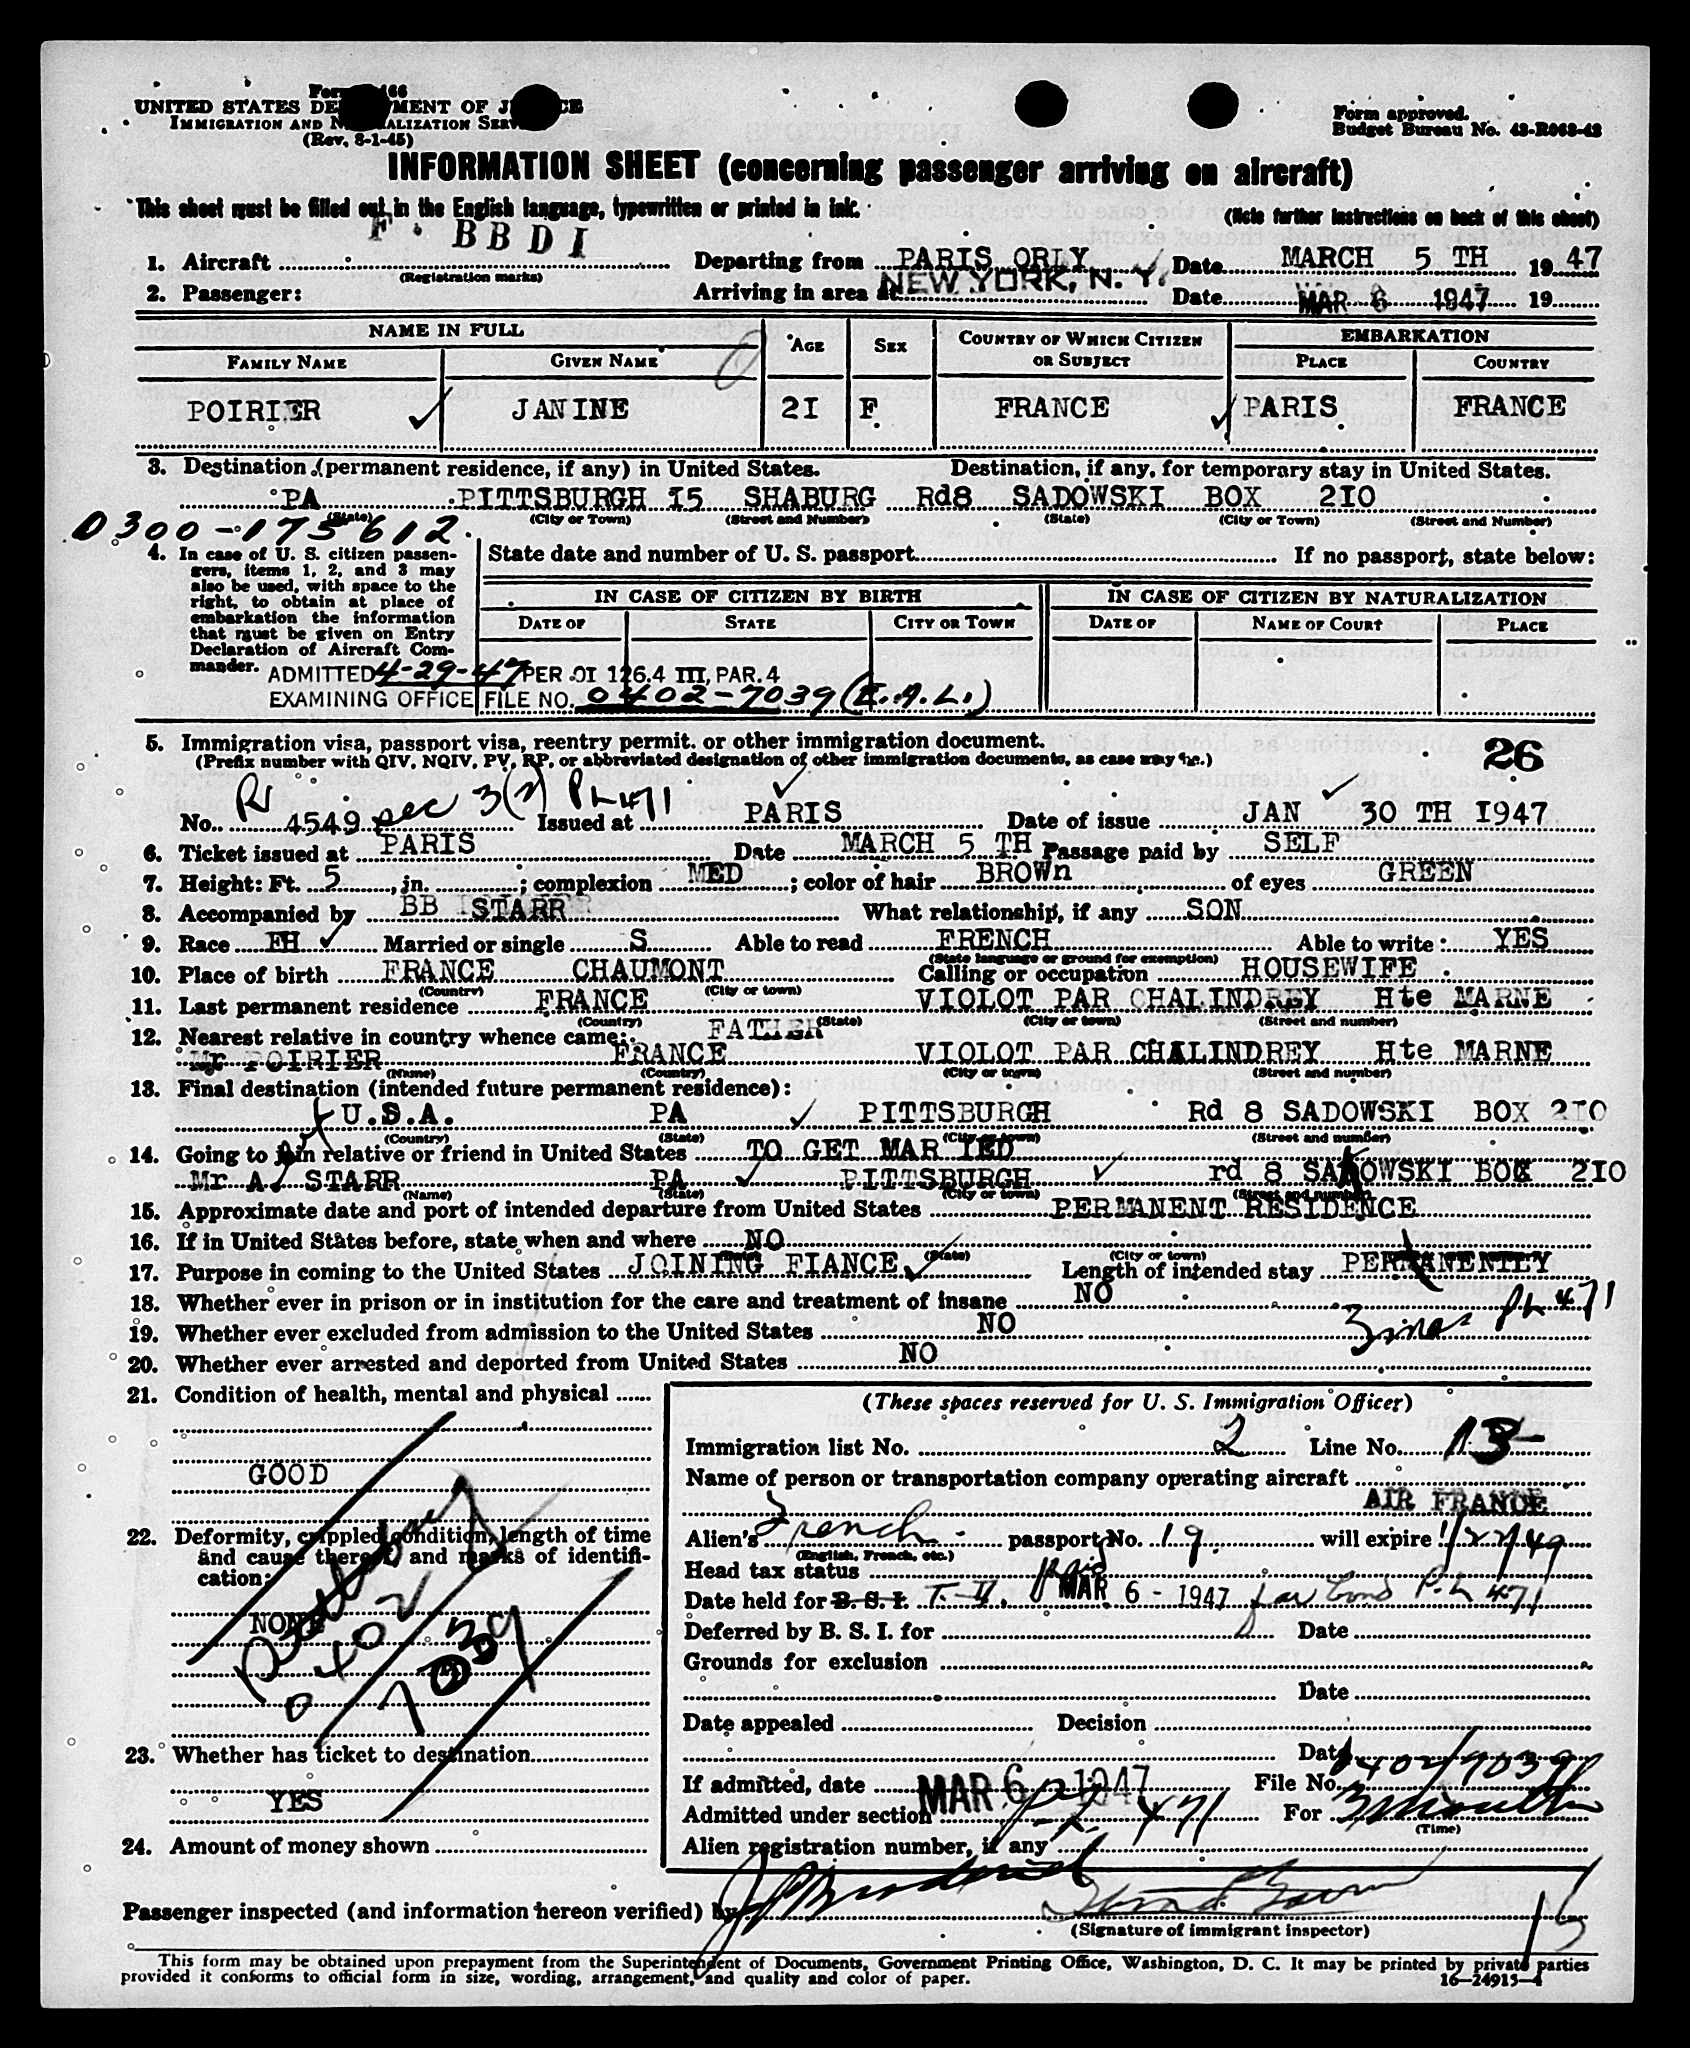 UNITED STATES DE MENT OF J CE
IMMIGRATION AND N ALIZATION SERV
(Rev. 8-1-45)
Form approved.
Budget Bureau No. 43-R063-42
INFORMATION SHEET (concerning passenger arriving on aircraft)
This sheet must be filled out in the English language, typewritten or printed in ink.
(Note further instructions on back of this sheet)
1. Aircraft F. BBDI (Registration marks) Departing from PARIS ORLY Date MARCH 5 TH 1947
2. Passenger: Arriving in area at NEW YORK, N. Y. Date MAR 6 1947 19
NAME IN FULL AGE SEX COUNTRY OF WHICH CITIZEN OR SUBJECT EMBARKATION
FAMILY NAME GIVEN NAME PLACE COUNTRY
POIRIER JANINE 2I F FRANCE PARIS FRANCE
3. Destination (permanent residence, if any) in United States. Destination, if any, for temporary stay in United States.
PA PITTSBURGH I5 SHABURG Rd8 SADOWSKI BOX 2IO
(State) (City or Town) (Street and Number) (State) (City or Town) (Street and Number)
0300-175612.
4. In case of U. S. citizen passengers, items 1, 2, and 3 may also be used, with space to the right, to obtain at place of embarkation the information that must be given on Entry Declaration of Aircraft Commander.
State date and number of U. S. passport If no passport, state below:
IN CASE OF CITIZEN BY BIRTH IN CASE OF CITIZEN BY NATURALIZATION
DATE OF STATE CITY OR TOWN DATE OF NAME OF COURT PLACE
ADMITTED 4-29-47 PER OI 126.4 III, PAR. 4
EXAMINING OFFICE FILE NO. 0402-7039 (E.A.L.)
5. Immigration visa, passport visa, reentry permit, or other immigration document. 26
(Prefix number with QIV, NQIV, PV, RP, or abbreviated designation of other immigration documents, as case may be.)
No. 4549 sec 3(2) PL 471 Issued at PARIS Date of issue JAN 30 TH I947
6. Ticket issued at PARIS Date MARCH 5 TH Passage paid by SELF
7. Height: Ft. 5, in. ; complexion MED; color of hair BROWn of eyes GREEN
8. Accompanied by BB STARR What relationship, if any SON
9. Race FH Married or single S Able to read FRENCH Able to write: YES
(State language or ground for exemption)
10. Place of birth FRANCE CHAUMONT Calling or occupation HOUSEWIFE
(Country) (City or town)
11. Last permanent residence FRANCE VIOLOT PAR CHALINDREY Hte MARNE
(Country) (State) (City or town) (Street and number)
12. Nearest relative in country whence came: FATHER
Mr POIRIER FRANCE VIOLOT PAR CHALINDREY Hte MARNE
(Name) (Country) (City or town) (Street and number)
13. Final destination (intended future permanent residence):
U.S.A. PA PITTSBURGH Rd 8 SADOWSKI BOX 2IO
(Country) (State) (City or town) (Street and number)
14. Going to join relative or friend in United States TO GET MAR IED
Mr A. STARR PA PITTSBURGH rd 8 SADOWSKI BOX 2IO
(Name) (State) (City or town) (Street and number)
15. Approximate date and port of intended departure from United States PERMANENT RESIDENCE
16. If in United States before, state when and where NO
(State) (City or town)
17. Purpose in coming to the United States JOINING FIANCE Length of intended stay PERMANENTLY
18. Whether ever in prison or in institution for the care and treatment of insane NO
3 mos PL 471
19. Whether ever excluded from admission to the United States NO
20. Whether ever arrested and deported from United States NO
21. Condition of health, mental and physical
GOOD
22. Deformity, crippled condition, length of time and cause thereof, and marks of identification:
NONE
0402
7039
23. Whether has ticket to destination
YES
24. Amount of money shown
(These spaces reserved for U. S. Immigration Officer)
Immigration list No. 2 Line No. 13
Name of person or transportation company operating aircraft
AIR FRANCE
Alien's French passport No. 19. will expire 1/22/49
(English, French, etc.)
Head tax status paid
Date held for B. S. I. T.V. MAR 6 - 1947 for bond P.L 471
Deferred by B. S. I. for Date
Grounds for exclusion
Date
Date appealed Decision
Date
If admitted, date MAR 6 1947 File No. 0402/7039
Admitted under section PL 471 For 3 months
(Time)
Alien registration number, if any
Passenger inspected (and information hereon verified) by
(Signature of immigrant inspector)
This form may be obtained upon prepayment from the Superintendent of Documents, Government Printing Office, Washington, D. C. It may be printed by private parties
provided it conforms to official form in size, wording, arrangement, and quality and color of paper. 16—24915-4